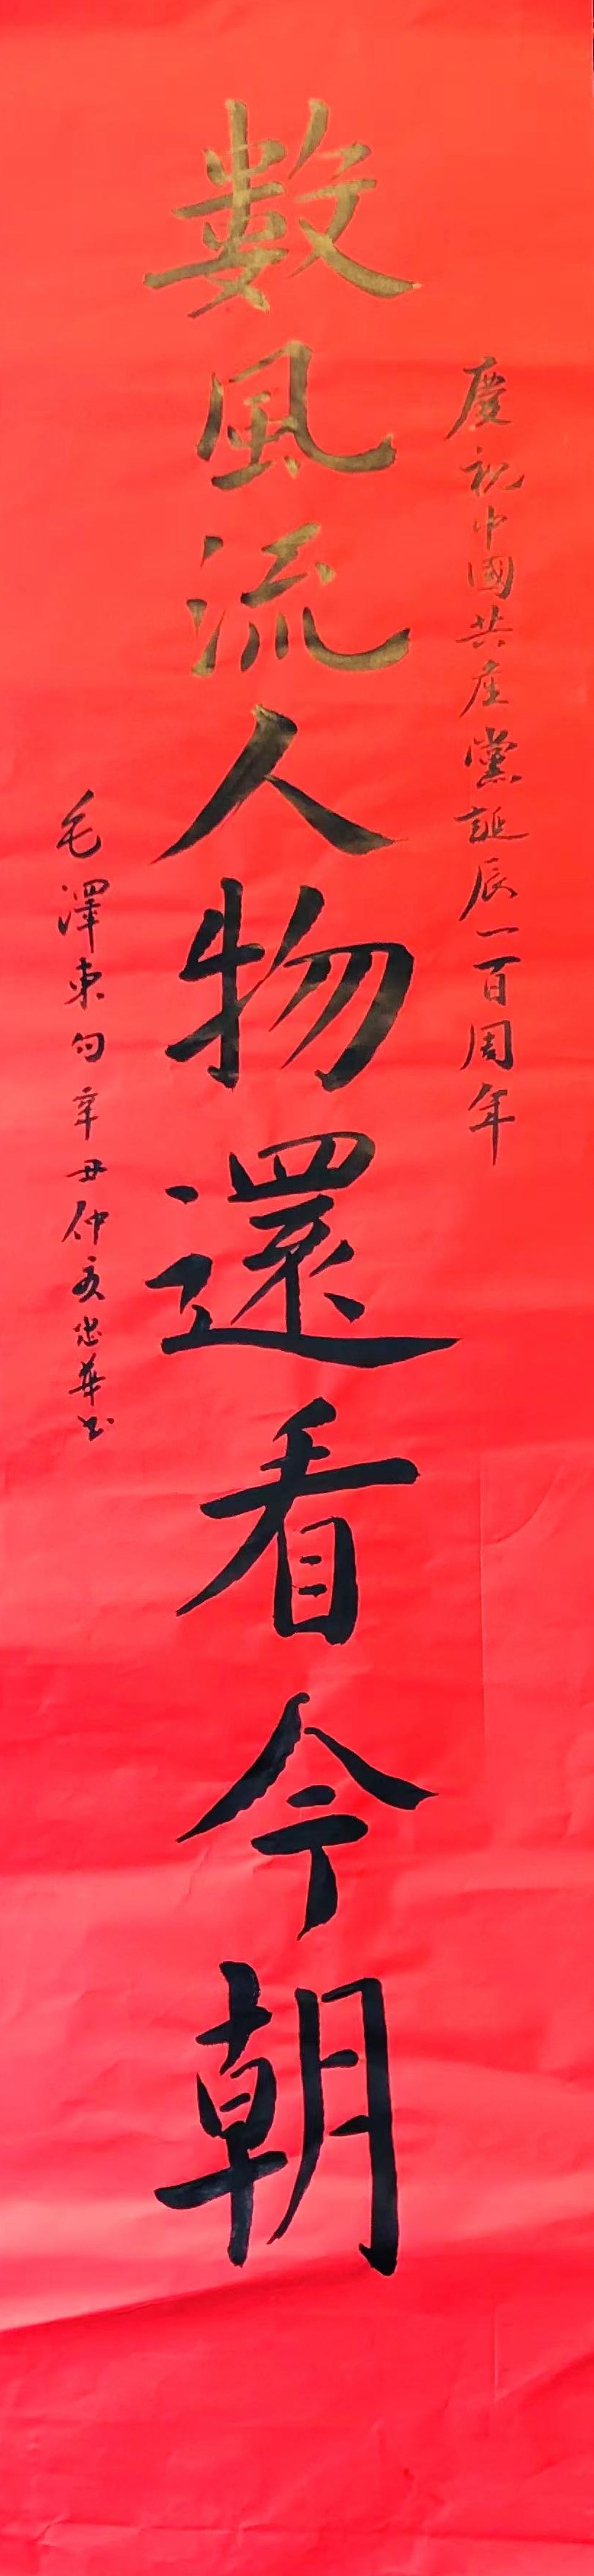 慶祝中國共産黨誕辰一百周年
数風流人物還看今朝
毛澤東句辛丑仲亥忠華书